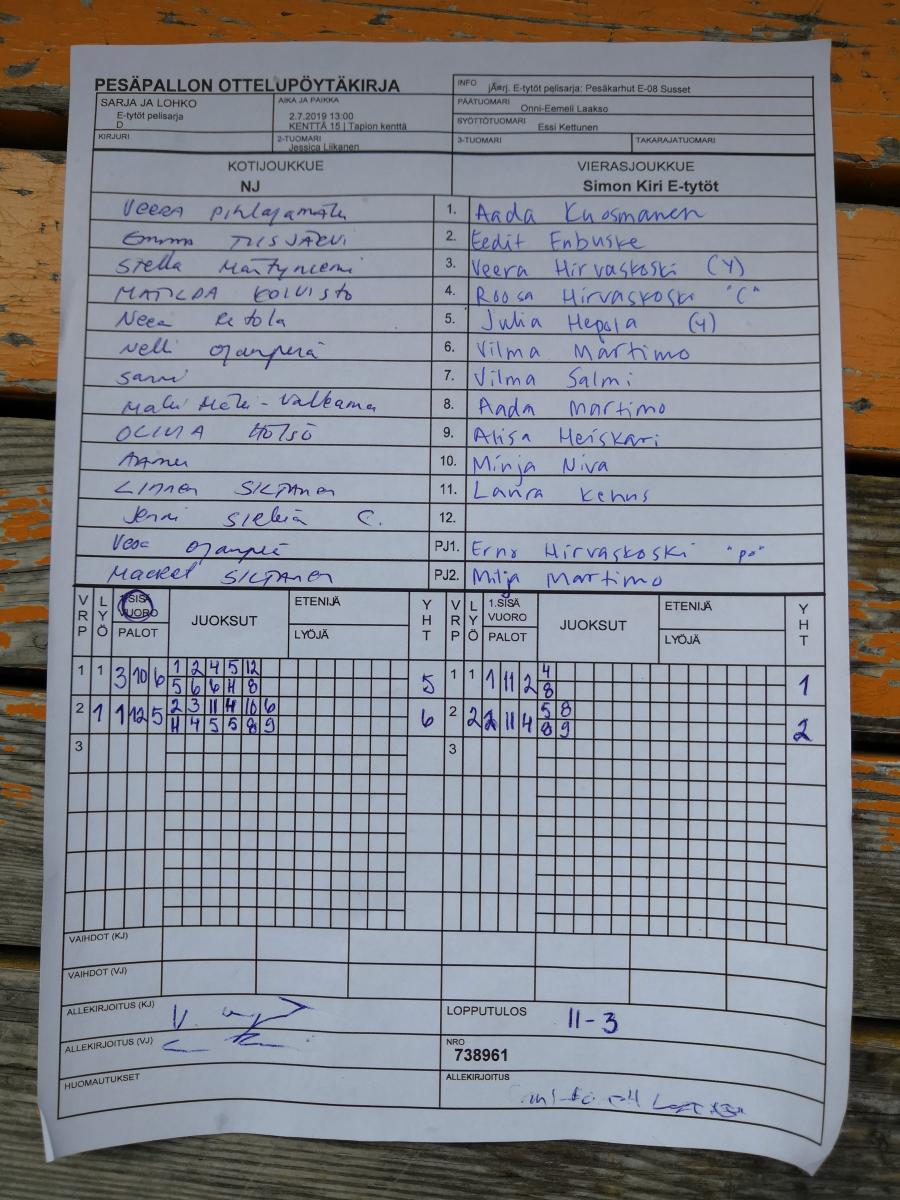 PESÄPALLON OTTELUPÖYTÄKIRJA
INFO jÃ¤rj. E-tytöt pelisarja: Pesäkarhut E-08 Susset
SARJA JA LOHKO
E-tytöt pelisarja
D
AIKA JA PAIKKA
2.7.2019 13:00
KENTTÄ 15 | Tapion kenttä
PÄÄTUOMARI Onni-Eemeli Laakso
SYÖTTÖTUOMARI Essi Kettunen
KIRJURI
2-TUOMARI Jessica Liikanen
3-TUOMARI
TAKARAJATUOMARI
KOTIJOUKKUE
NJ
VIERASJOUKKUE
Simon Kiri E-tytöt
Veera Pihlajamäki 1. Aada Kuosmanen
Emma 2. Eedit Enbuske
Stella 3. Veera Hirvaskoski (Y)
MATILDA KOIVISTO 4. Roosa Hirvaskoski "C"
Neea 5. Julia Hepola (Y)
Nelli Ojanperä 6. Vilma Martimo
Sanni 7. Vilma Salmi
8. Aada Martimo
OLIVIA 9. Alisa Heiskari
10. Minja Niva
SILTANEN 11. Laura Kehus
Jenni C. 12.
Vesa Ojanperä PJ1. Erno Hirvaskoski "po"
SILTANEN PJ2. Milja Martimo
VRP LYÖ 1.SISÄ VUORO PALOT JUOKSUT ETENIJÄ LYÖJÄ YHT VRP LYÖ 1.SISÄ VUORO PALOT JUOKSUT ETENIJÄ LYÖJÄ YHT
1 1 3 10 6 1 2 4 5 12 5 1 1 1 11 2 4 1
5 6 6 11 8 8
2 1 1 12 5 2 3 11 4 10 6 6 2 2 2 11 4 5 8 2
4 4 5 5 8 9 8 9
3 3
VAIHDOT (KJ)
VAIHDOT (VJ)
ALLEKIRJOITUS (KJ)
LOPPUTULOS 11-3
ALLEKIRJOITUS (VJ)
NRO
738961
HUOMAUTUKSET
ALLEKIRJOITUS